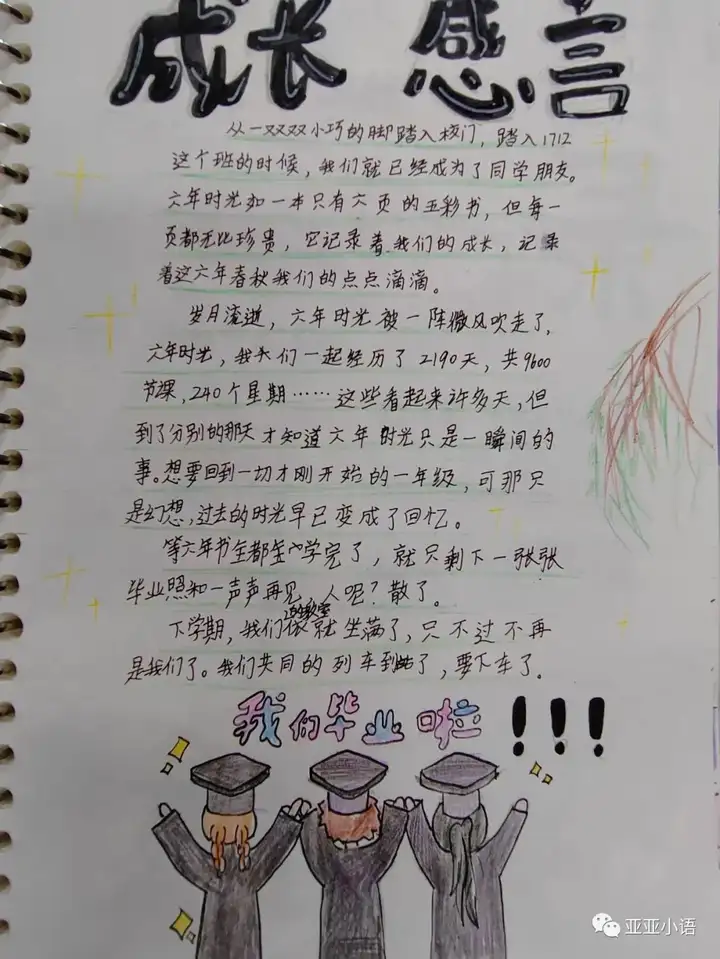 成长 感言
从一双双小巧的脚踏入校门，踏入1712
这个班的时候，我们就已经成为了同学朋友。
六年时光如一本只有六页的五彩书，但每一
页都无比珍贵，它记录着我们的成长，记录
着这六年春秋我们的点点滴滴。
岁月流逝，六年时光被一阵微风吹走了，
六年时光，我们一起经历了2190天，共9600
节课，240个星期……这些看起来许多天，但
到了分别的那天才知道六年时光只是一瞬间的
事。想要回到一切才刚开始的一年级，可那只
是幻想，过去的时光早已变成了回忆。
等六年书全都学完了，就只剩下一张张
毕业照和一声声再见，人呢？散了。
下学期，我们教室就坐满了，只不过不再
是我们了。我们共同的列车到站了，要下车了。
我们毕业啦！！！
亚亚小语